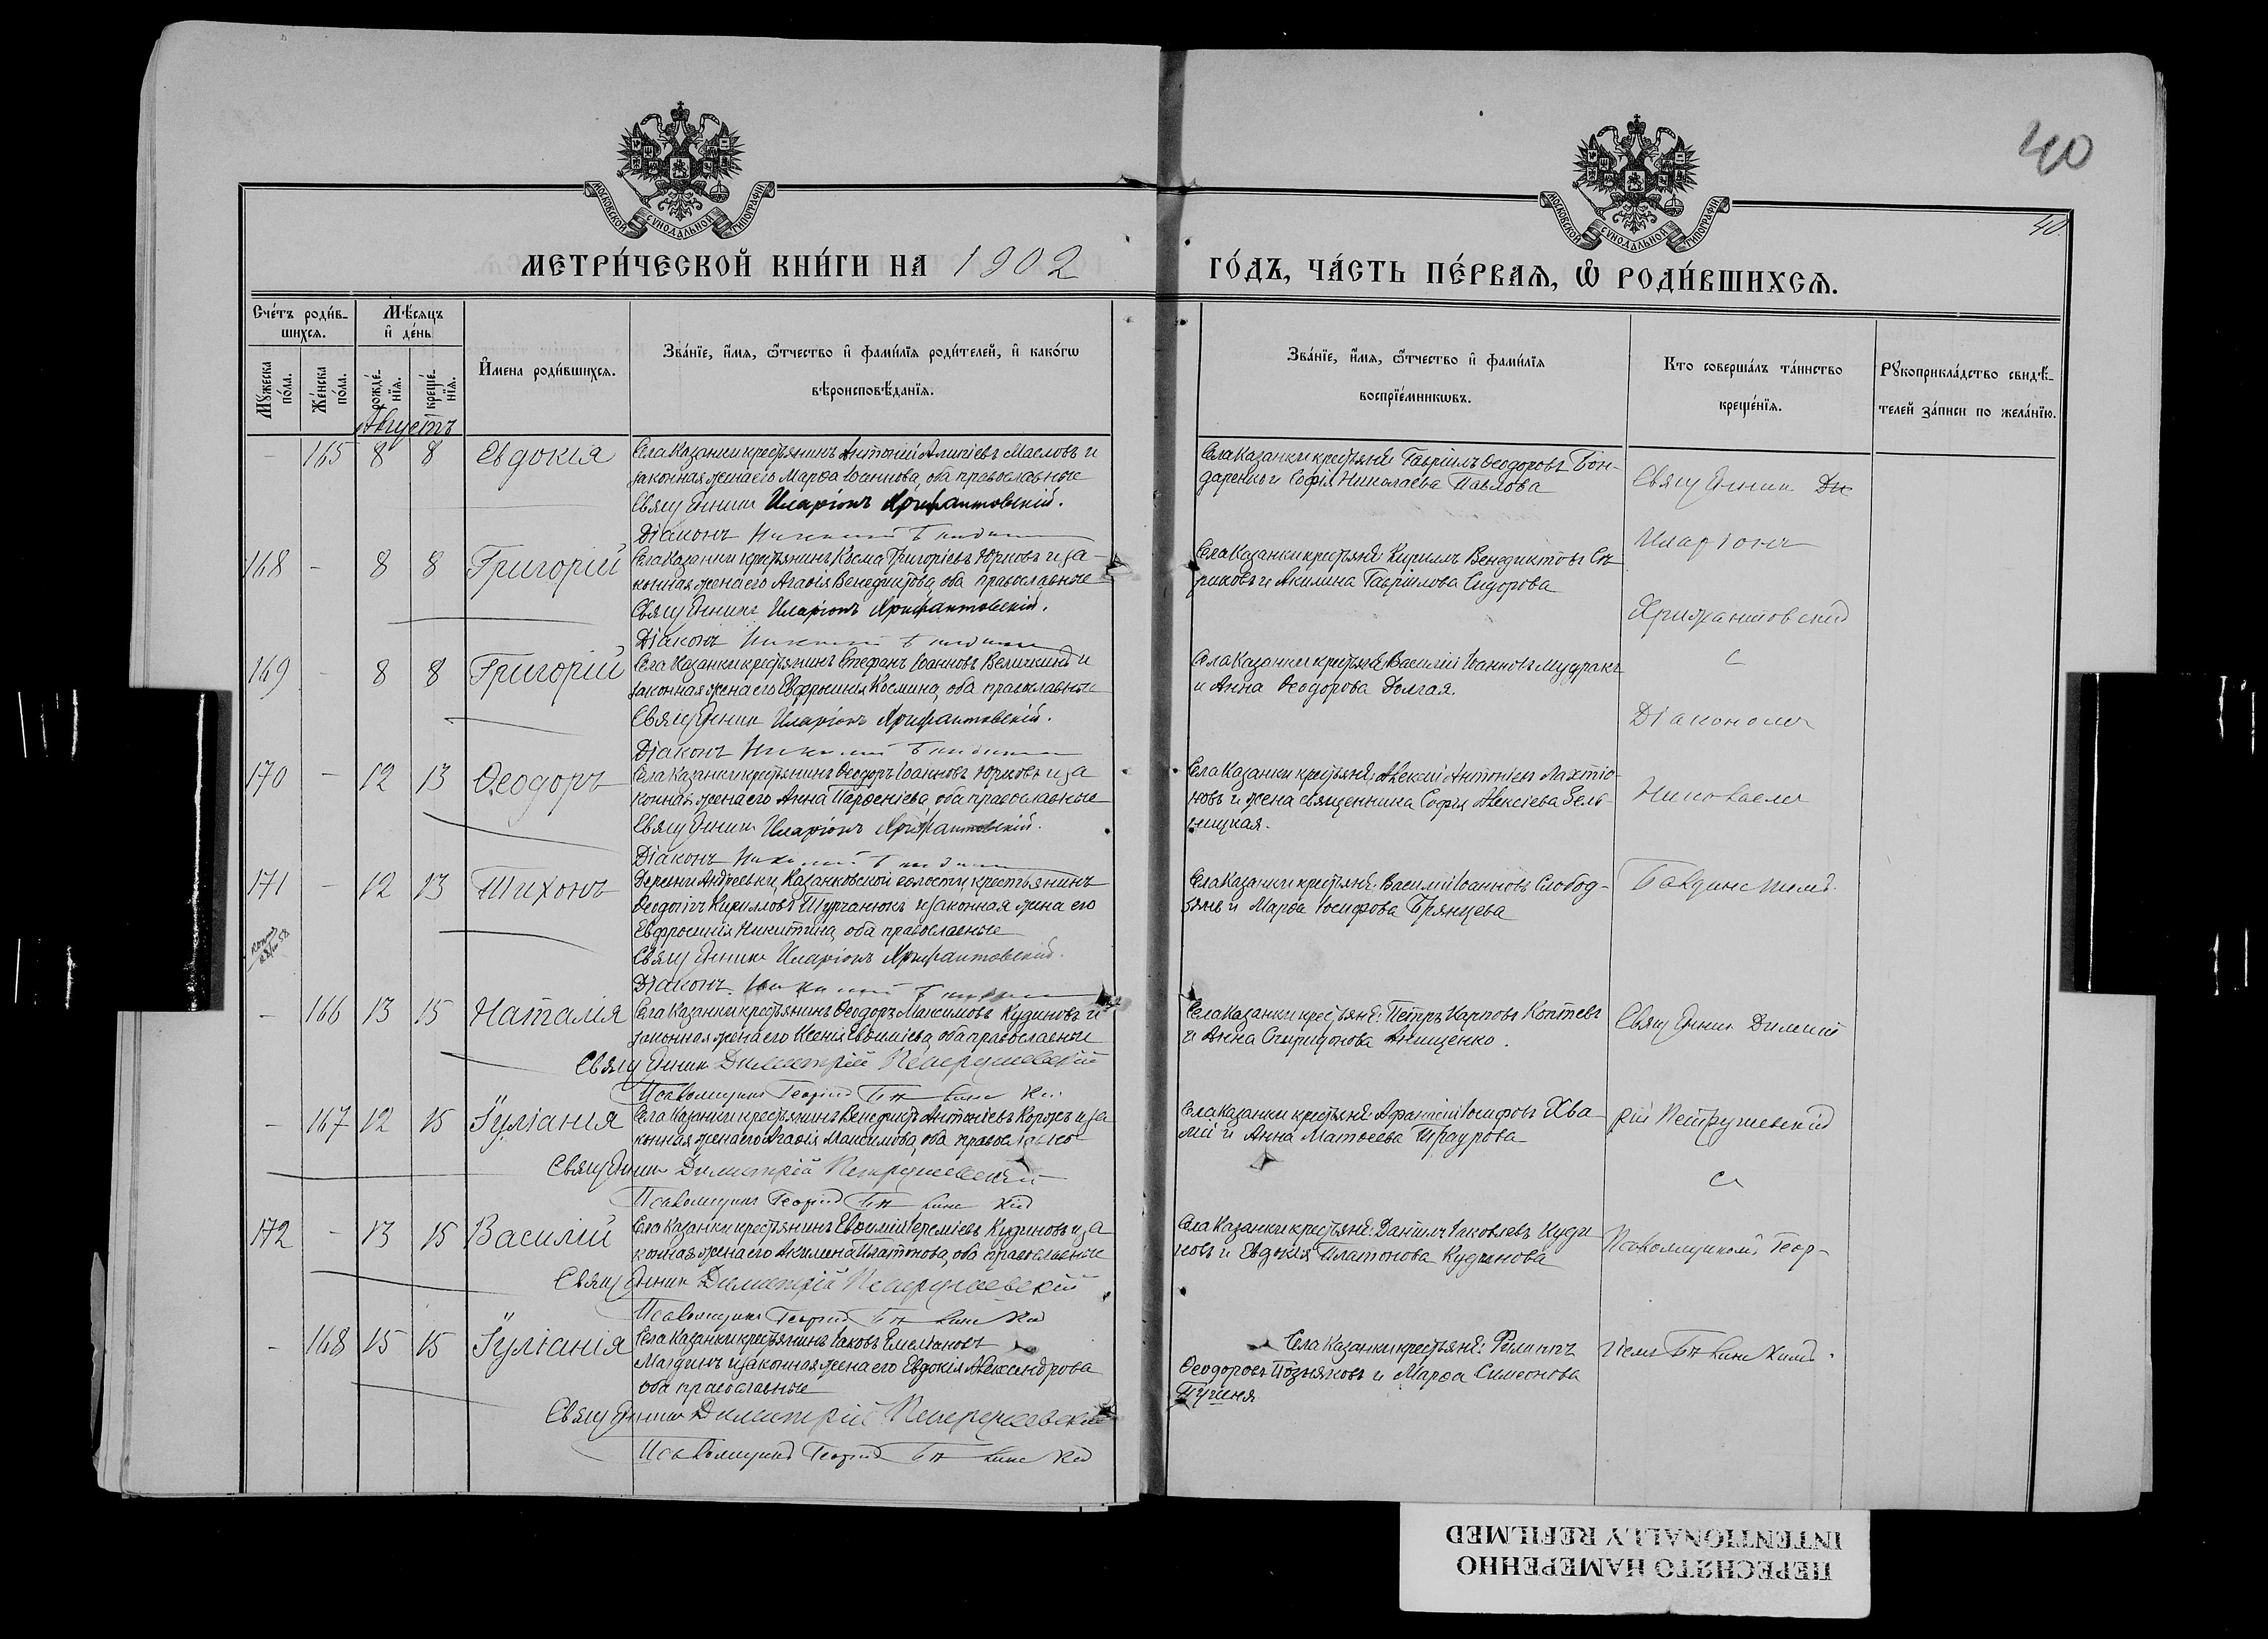 40
МОСКОВСКОЙ СѴНОДАЛЬНОЙ ТИПОГРАФІИ
МОСКОВСКОЙ СѴНОДАЛЬНОЙ ТИПОГРАФІИ
40.
МЕТРИ́ЧЕСКОЙ КНИ́ГИ НА 1902
ГО́ДЪ, ЧА́СТЬ ПЕ́РВАЯ, Ѡ҆ РОДИ́ВШИХСѦ.
Сче́тъ роди́в-
шихся.
Мѣ́сяцъ
и҆ де́нь
Мꙋ́жеска по́ла.
Же́нска по́ла.
рожде́-нїя.
креще́-нїя.
И҆мена роди́вшихся.
Зва́нїе, и҆́мя, ѻ҆́тчество и҆ фами́лїя роди́телей, и҆ како́гѡ
вѣроисповѣ́данїя.
Зва́нїе, и҆́мя, ѻ҆́тчество и҆ фами́лїя
воспрїе́мникѡвъ.
Кто соверша́лъ та́инство
креще́нїя.
Рꙋкоприкла́дство свидѣ́-
телей за́писи по жела́нїю.
Августъ
- 165 8 8 Евдокія
Села Казанки крестьянинъ Антоній Алипіевъ Масловъ и
законная жена его Марѳа Іоаннова, оба православные
Священникъ Иларіонъ Хрисантовскій.
Діаконъ
Села Казанки крестьяне: Гавріилъ Ѳеодоровъ Бон-
даренко и Софія Николаева Павлова
Священник
Иларіонъ
168 - 8 8 Григорій
Села Казанки крестьянинъ Косма Григорьевъ Юрковъ и за-
конная жена его Агаѳія Венедиктова, оба православные
Священникъ Иларіонъ Хрисантовскій.
Діаконъ
Села Казанки крестьяне: Кириллъ Венедиктовъ Сѣ-
риковъ и Акилина Гавріилова Сидорова
Хрисантовскій
169 - 8 8 Григорій
Села Казанки крестьянинъ Стефанъ Іоанновъ Величкинъ и
законная жена его Евфросинія Космина, оба православные
Священникъ Иларіонъ Хрисантовскій.
Діаконъ
Села Казанки крестьяне: Василій Іоанновъ Мудракъ
и Анна Ѳеодорова Долгая.
с
Діакономъ
170 - 12 13 Ѳеодоръ
Села Казанки крестьянинъ Ѳеодоръ Іоанновъ Юрковъ и за
конная жена его Анна Парѳеніева, оба православные
Священникъ Иларіонъ Хрисантовскій.
Діаконъ
Села Казанки крестьяне: Алексій Антоніевъ Лахтіо-
новъ и жена священника Софія Алексіева
ницкая.
Николаемъ
171 - 12 13 Тихонъ
Деревни Андреевки, Казанковской волости, крестьянинъ
Кирилловъ Турчанюкъ и законная жена его
Евфросинія Никитина, оба православные
Священникъ Иларіонъ Хрисантовскій.
Діаконъ
Села Казанки крестьяне: Василій Іоанновъ Слобод-
и Марѳа Іосифова Брянцева
- 166 13 15 Наталія
Села Казанки крестьянинъ Ѳеодоръ Максимовъ Кудиновъ и
законная жена его Ксенія Евѳиміева, оба православные
Священникъ Димитрій Петрушевскій
Псаломщикъ Георгій
Села Казанки крестьяне: Петръ Карповъ Коптевъ
и Анна Спиридонова Анищенко.
Священник Димит
- 167 12 15 Іуліанія
Села Казанки крестьянинъ Венедиктъ Антоніевъ и за
конная жена его Агаѳія Максимова, оба православные
Священникъ Димитрій Петрушевскій
Псаломщикъ Георгій
Села Казанки крестьяне: Аѳанасій Іосифовъ Хва-
лій и Анна Матѳеева Траурова
рій Петрушевскій
съ
172 - 13 15 Василій
Села Казанки крестьянинъ Евѳимій Іереміевъ Кудиновъ и за
конная жена его Акилина Платонова, оба православные
Священникъ Димитрій Петрушевскій
Псаломщикъ Георгій
Села Казанки крестьяне: Даніилъ Іаковлевъ Куди
новъ и Евдокія Платонова Кудинова
Псаломщикомъ Геор-
- 168 15 15 Іуліанія
Села Казанки крестьянинъ Іаковъ Емельяновъ
и законная жена его Евдокія Александрова
оба православные
Священникъ Димитрій Петрушевскій
Псаломщикъ Георгій
Села Казанки крестьяне: Филиппъ
Ѳеодоровъ Позняковъ и Марѳа Симеонова
гіемъ
ПЕРЕСНЯТО НАМЕРЕННО
INTENTIONALLY REFILMED